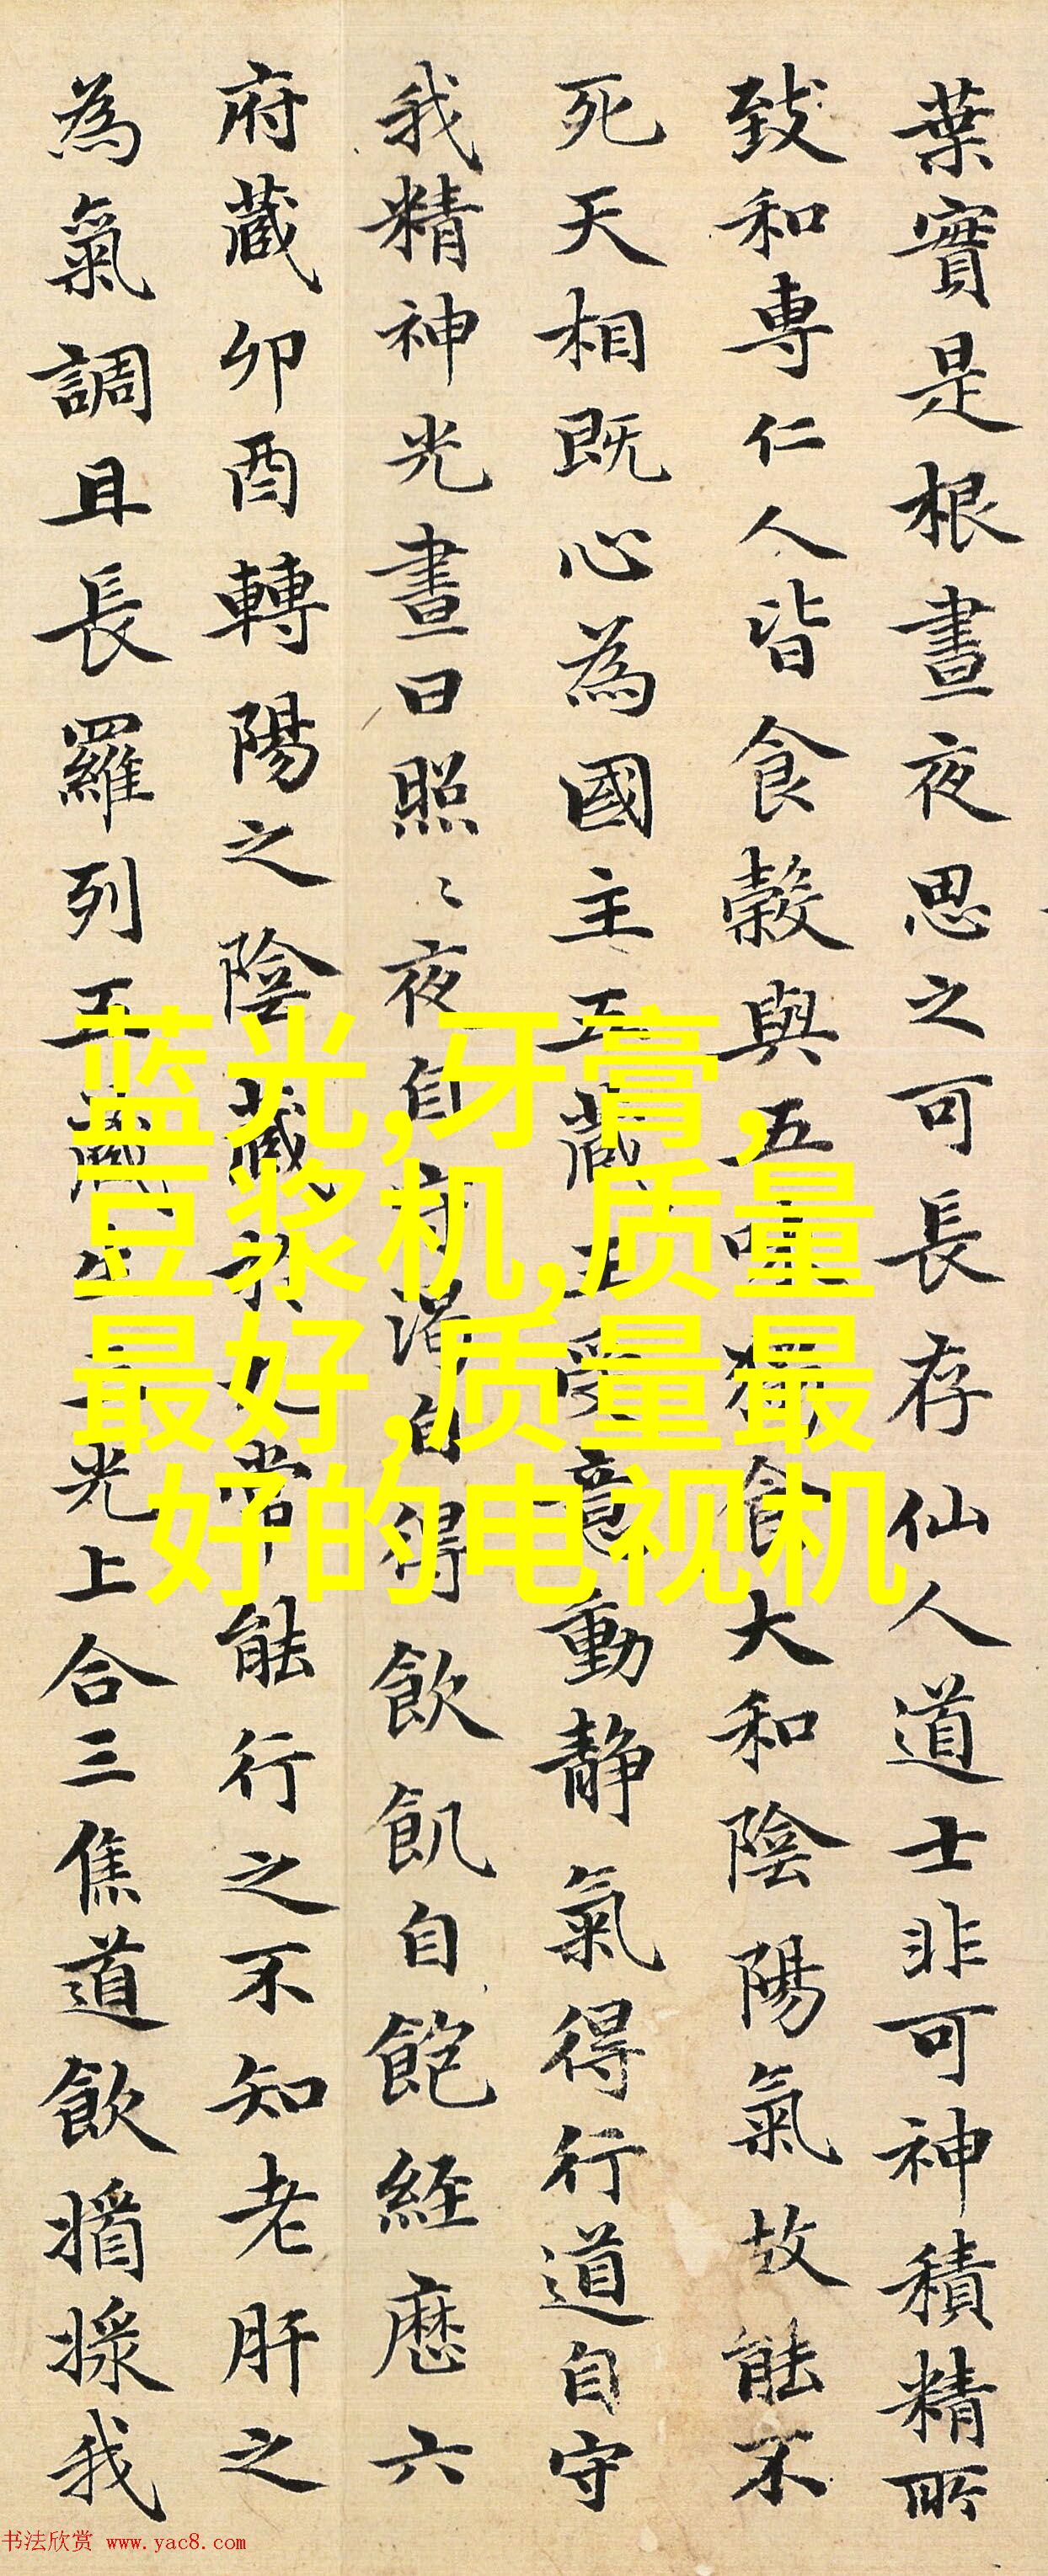 葉實是根晝夜思之可長存仙人道士非可神積精所
致和專仁人皆食穀與五味獨食大和陰陽氣故能不
死天相既心為國主五藏王受意動静氣得行道自守
我精神光晝日照〻夜自守渴自得飲飢自飽經歷六
府藏卯酉轉陽之陰藏於九常能行之不知老肝之
為氣調且長羅列五藏生三光上合三焦道飲
我
蓝光,牙膏,
豆浆机,质量
最好,质量最
好的电视机
书法欣赏 www.yac8.com